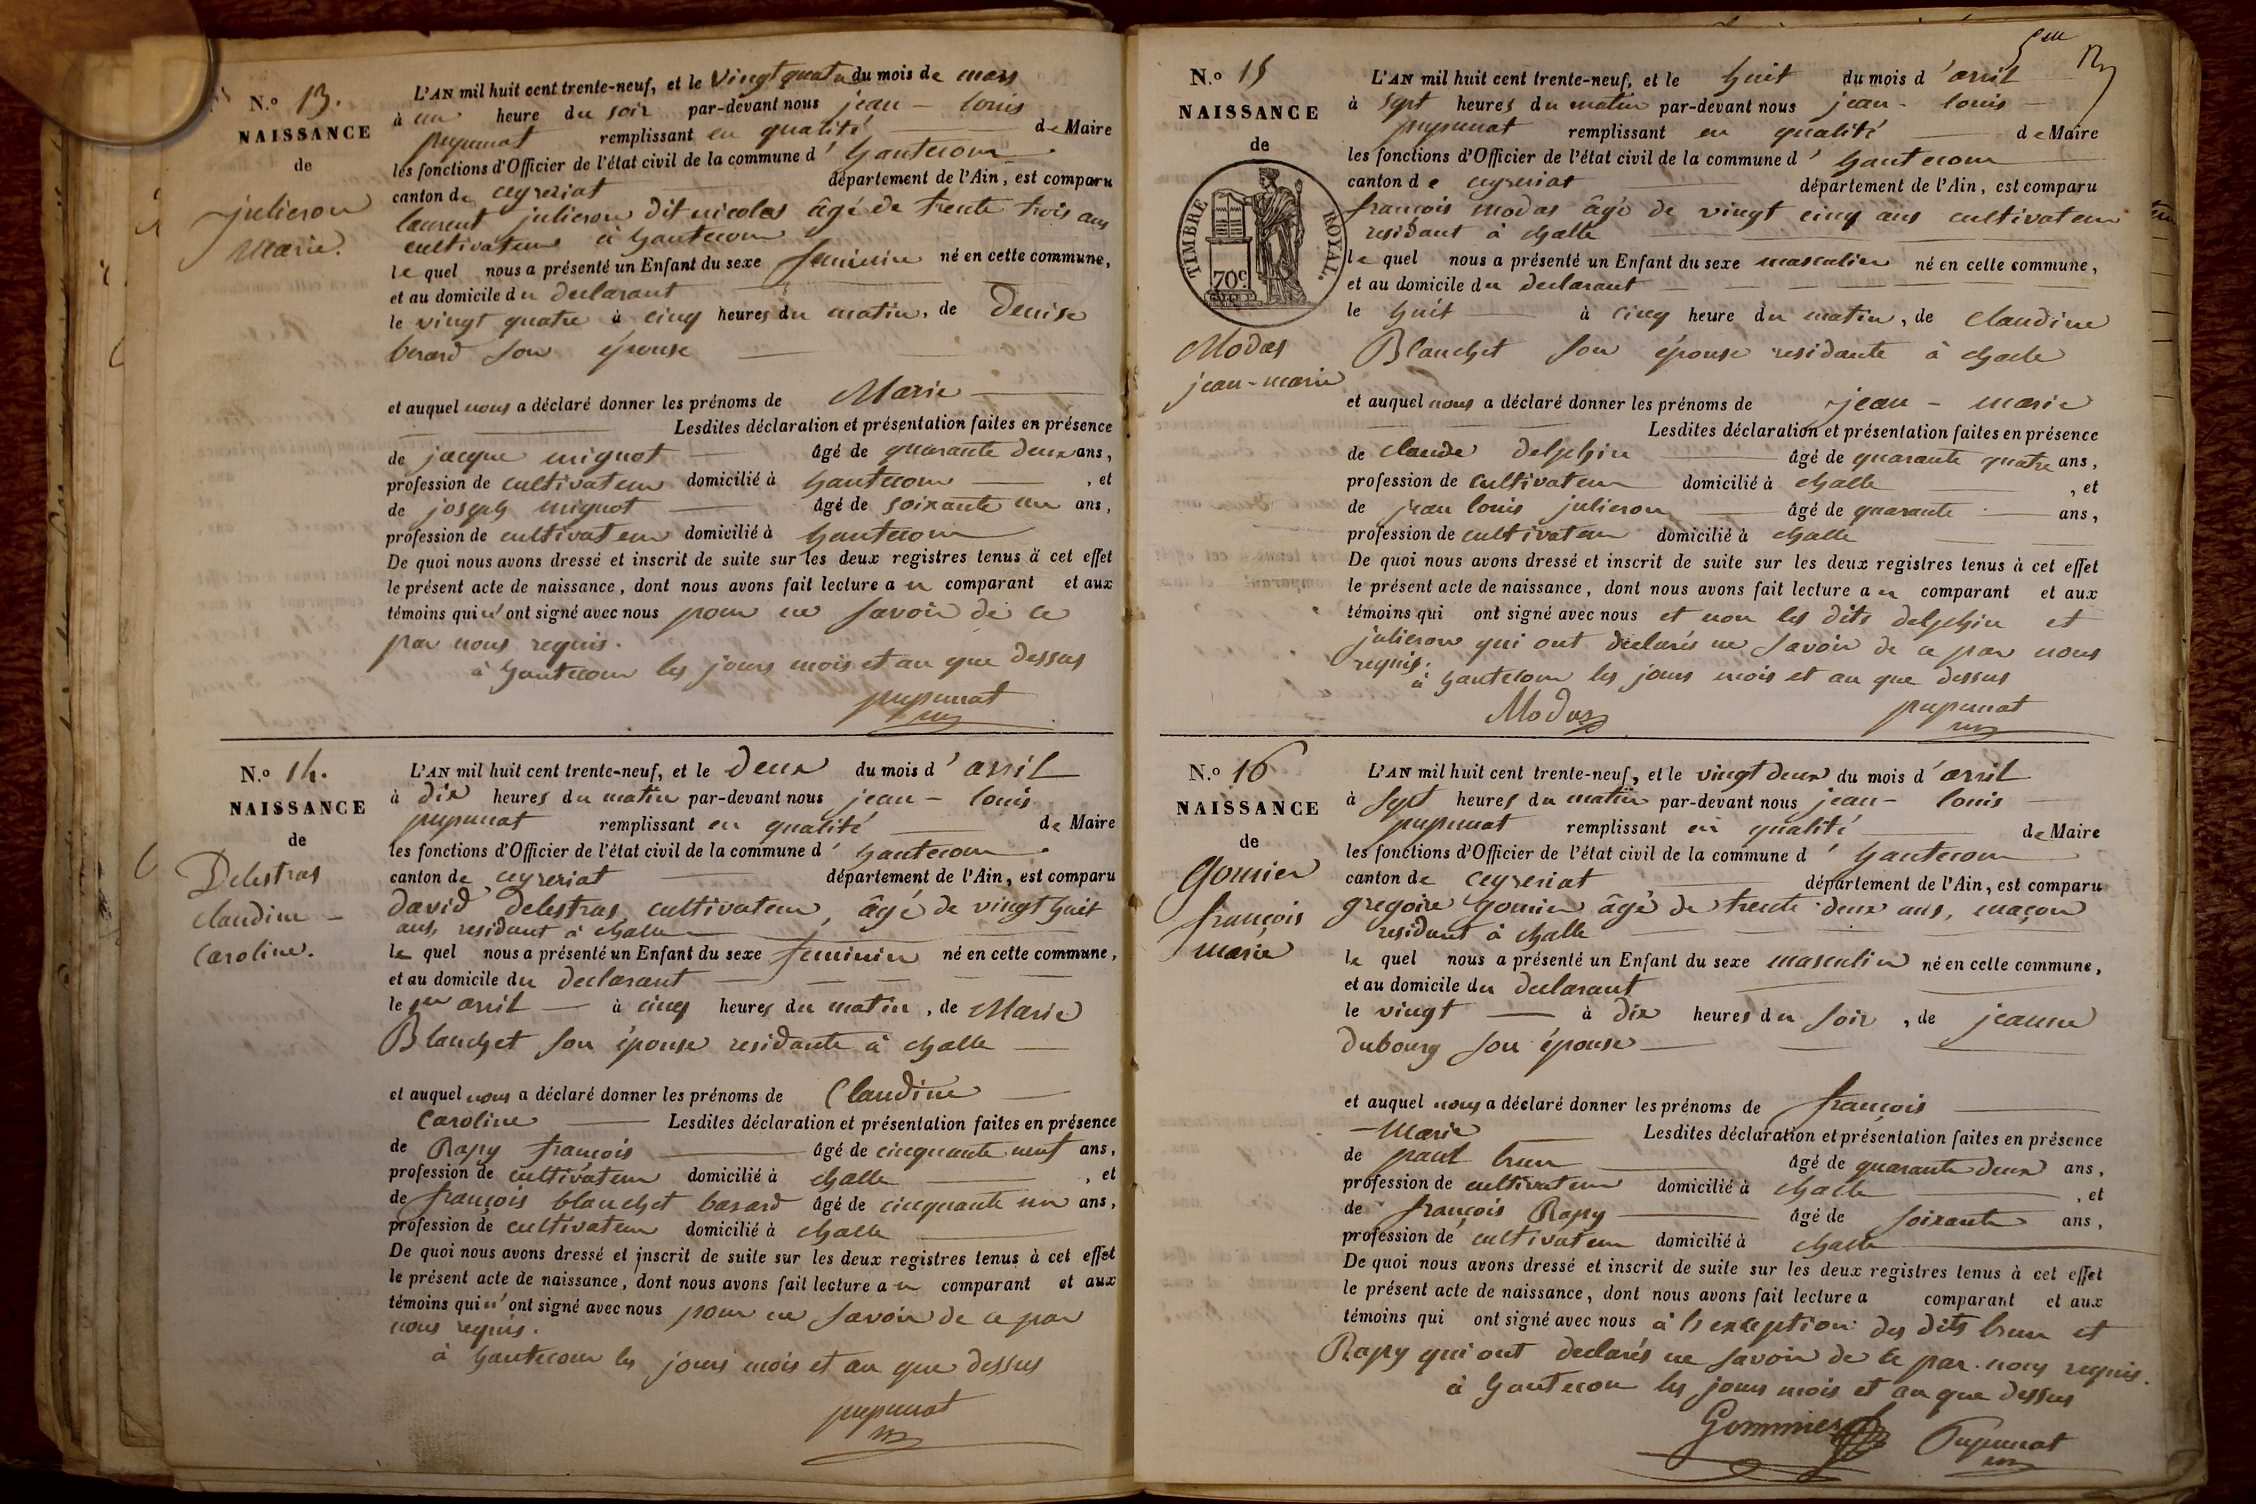 N.º 13.
NAISSANCE
de
julieron
Marie.
L'AN mil huit cent trente-neuf, et le vingt quatre du mois de mars
à un heure du soir par-devant nous jean - louis
pupunat remplissant en qualité de Maire
les fonctions d'Officier de l'état civil de la commune d' hautecour
canton de ceyzeriat département de l'Ain, est comparu
laurent julieron dit nicolas âgé de trente trois ans
cultivateur à hautecour
le quel nous a présenté un Enfant du sexe feminin né en cette commune,
et au domicile du declarant
le vingt quatre à cinq heures du matin, de Denise
berard son épouse
et auquel nous a déclaré donner les prénoms de Marie
Lesdites déclaration et présentation faites en présence
de jacque mignot âgé de quarante deux ans,
profession de cultivateur domicilié à hautecour, et
de joseph mignot âgé de soixante un ans,
profession de cultivateur domicilié à hautecour
De quoi nous avons dressé et inscrit de suite sur les deux registres tenus à cet effet
le présent acte de naissance, dont nous avons fait lecture au comparant et aux
témoins qui n'ont signé avec nous pour ne savoir de ce
par nous requis.
à hautecour les jours mois et an que dessus
pupunat
N.º 14.
NAISSANCE
de
Delestras
claudine -
Caroline.
L'AN mil huit cent trente-neuf, et le deux du mois d'avril
à dix heures du matin par-devant nous jean - louis
pupunat remplissant en qualité de Maire
les fonctions d'Officier de l'état civil de la commune d' hautecour
canton de ceyzeriat département de l'Ain, est comparu
david Delestras cultivateur, âgé de vingt huit
ans, residant à challe
le quel nous a présenté un Enfant du sexe feminin né en cette commune,
et au domicile du declarant
le 1er avril à cinq heures du matin, de Marie
Blanchet son épouse residante à challe
et auquel nous a déclaré donner les prénoms de Claudine
Caroline Lesdites déclaration et présentation faites en présence
de Rapy françois âgé de cinquante neuf ans,
profession de cultivateur domicilié à challe, et
de françois blanchet barard âgé de cinquante un ans,
profession de cultivateur domicilié à challe
De quoi nous avons dressé et inscrit de suite sur les deux registres tenus à cet effet
le présent acte de naissance, dont nous avons fait lecture au comparant et aux
témoins qui n'ont signé avec nous pour ne savoir de ce par
nous requis.
à hautecour les jours mois et an que dessus
pupunat
N.º 15
NAISSANCE
de
TIMBRE ROYAL.
70c.
Modas
jean-marie
L'AN mil huit cent trente-neuf, et le huit du mois d'avril
à sept heures du matin par-devant nous jean - louis
pupunat remplissant en qualité de Maire
les fonctions d'Officier de l'état civil de la commune d' hautecour
canton de ceyzeriat département de l'Ain, est comparu
françois modas âgé de vingt cinq ans cultivateur
residant à challe
le quel nous a présenté un Enfant du sexe masculin né en cette commune,
et au domicile du declarant
le huit à cinq heure du matin, de claudine
Blanchet son épouse residante à challe
et auquel nous a déclaré donner les prénoms de jean - marie
Lesdites déclaration et présentation faites en présence
de claude delphin âgé de quarante quatre ans,
profession de cultivateur domicilié à challe, et
de jean louis julieron âgé de quarante ans,
profession de cultivateur domicilié à challe
De quoi nous avons dressé et inscrit de suite sur les deux registres tenus à cet effet
le présent acte de naissance, dont nous avons fait lecture au comparant et aux
témoins qui ont signé avec nous et non les dits delphin et
julieron qui ont declarés ne savoir de ce par nous
requis.
à hautecour les jours mois et an que dessus
Modas pupunat
N.º 16
NAISSANCE
de
Gomier
françois
marie
L'AN mil huit cent trente-neuf, et le vingt deux du mois d'avril
à sept heures du matin par-devant nous jean - louis
pupunat remplissant en qualité de Maire
les fonctions d'Officier de l'état civil de la commune d' hautecour
canton de ceyzeriat département de l'Ain, est comparu
gregoire gomier âgé de trente deux ans, maçon
residant à challe
le quel nous a présenté un Enfant du sexe masculin né en cette commune,
et au domicile du declarant
le vingt à dix heures du soir, de jeanne
dubourg son épouse
et auquel nous a déclaré donner les prénoms de françois
- Marie Lesdites déclaration et présentation faites en présence
de paul brun âgé de quarante deux ans,
profession de cultivateur domicilié à challe, et
de françois Rapy âgé de soixante ans,
profession de cultivateur domicilié à challe
De quoi nous avons dressé et inscrit de suite sur les deux registres tenus à cet effet
le présent acte de naissance, dont nous avons fait lecture a comparant et aux
témoins qui ont signé avec nous à l'exception des dits brun et
Rapy qui ont declarés ne savoir de ce par nous requis.
à hautecour les jours mois et an que dessus
Gommier Pupunat